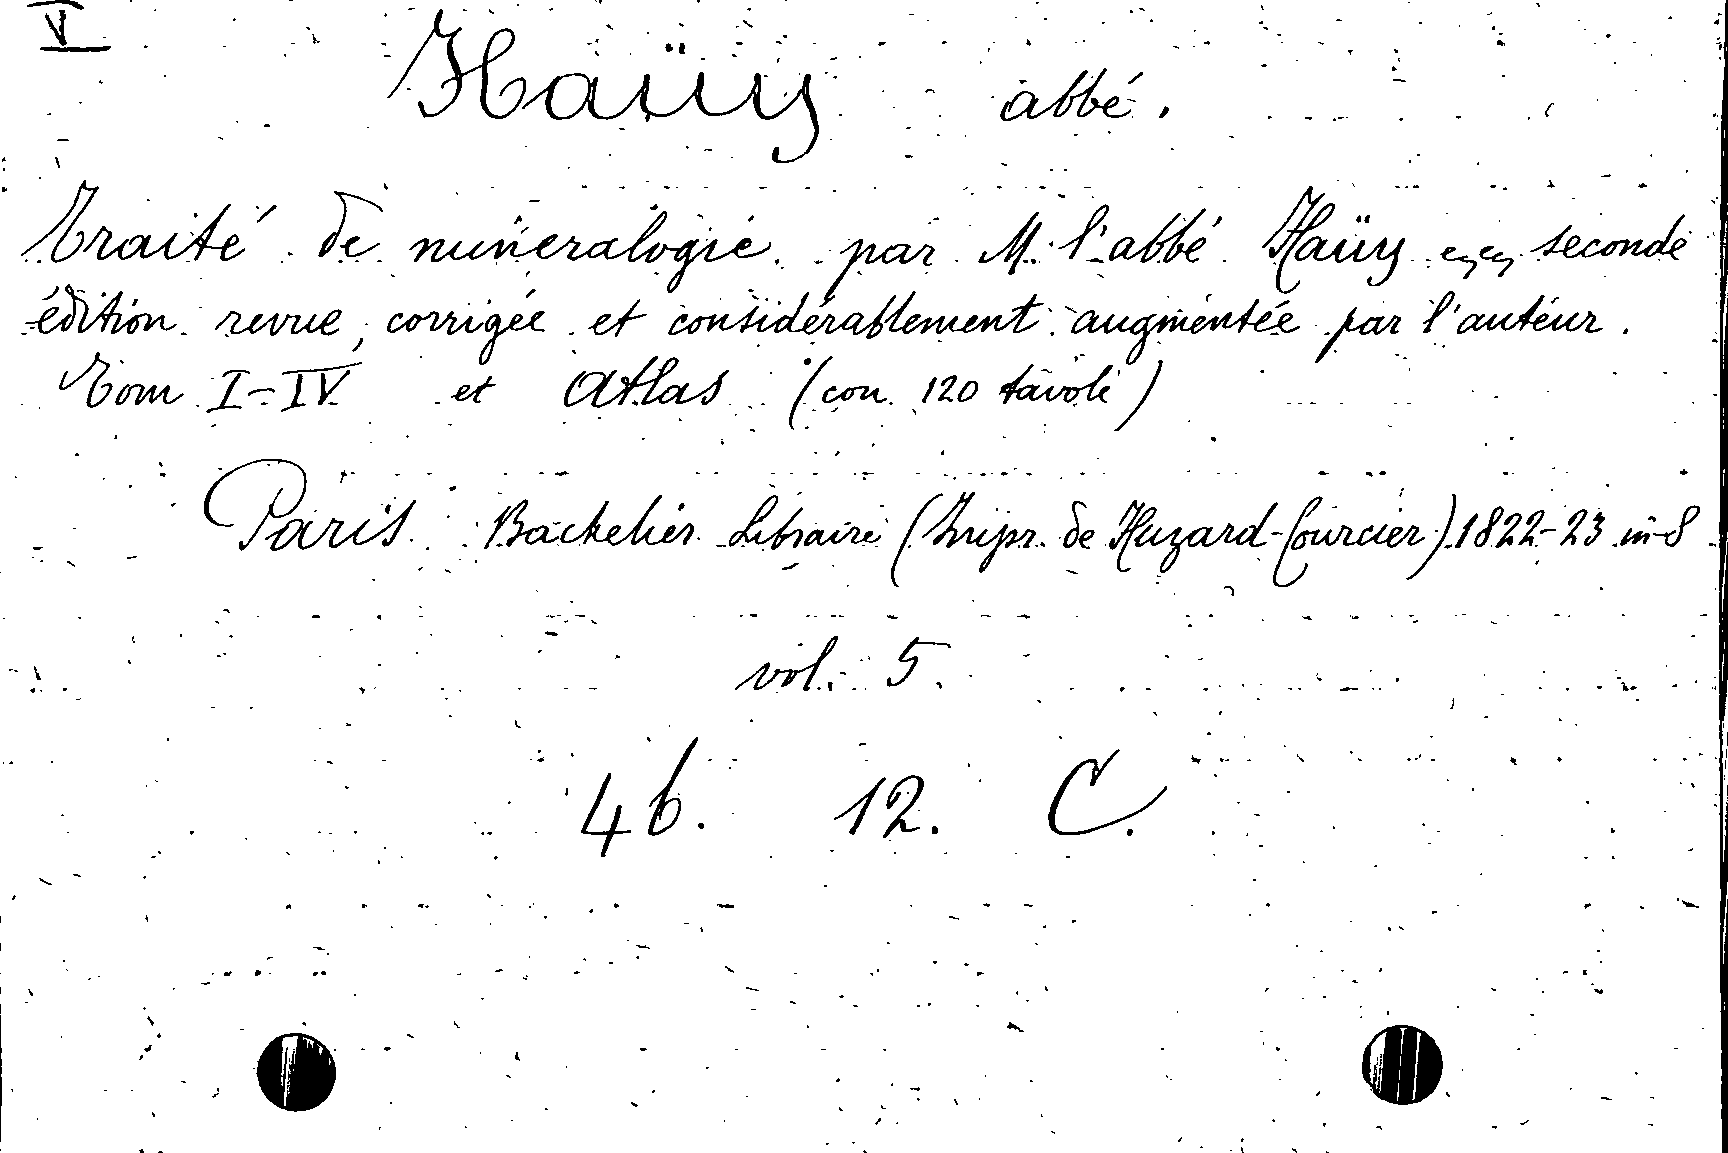 V
Haüy abbé.
Traité de minéralogie par M. l'abbé Haüy seconde
édition revue, corrigée et considérablement augmentée par l'auteur.
Tom I-IV et Atlas (con 120 tavole)
Paris Bachelier Libraire (Impr. de Huzard-Courcier) 1822-23 in-8
vol. 5.
46. 12. C.